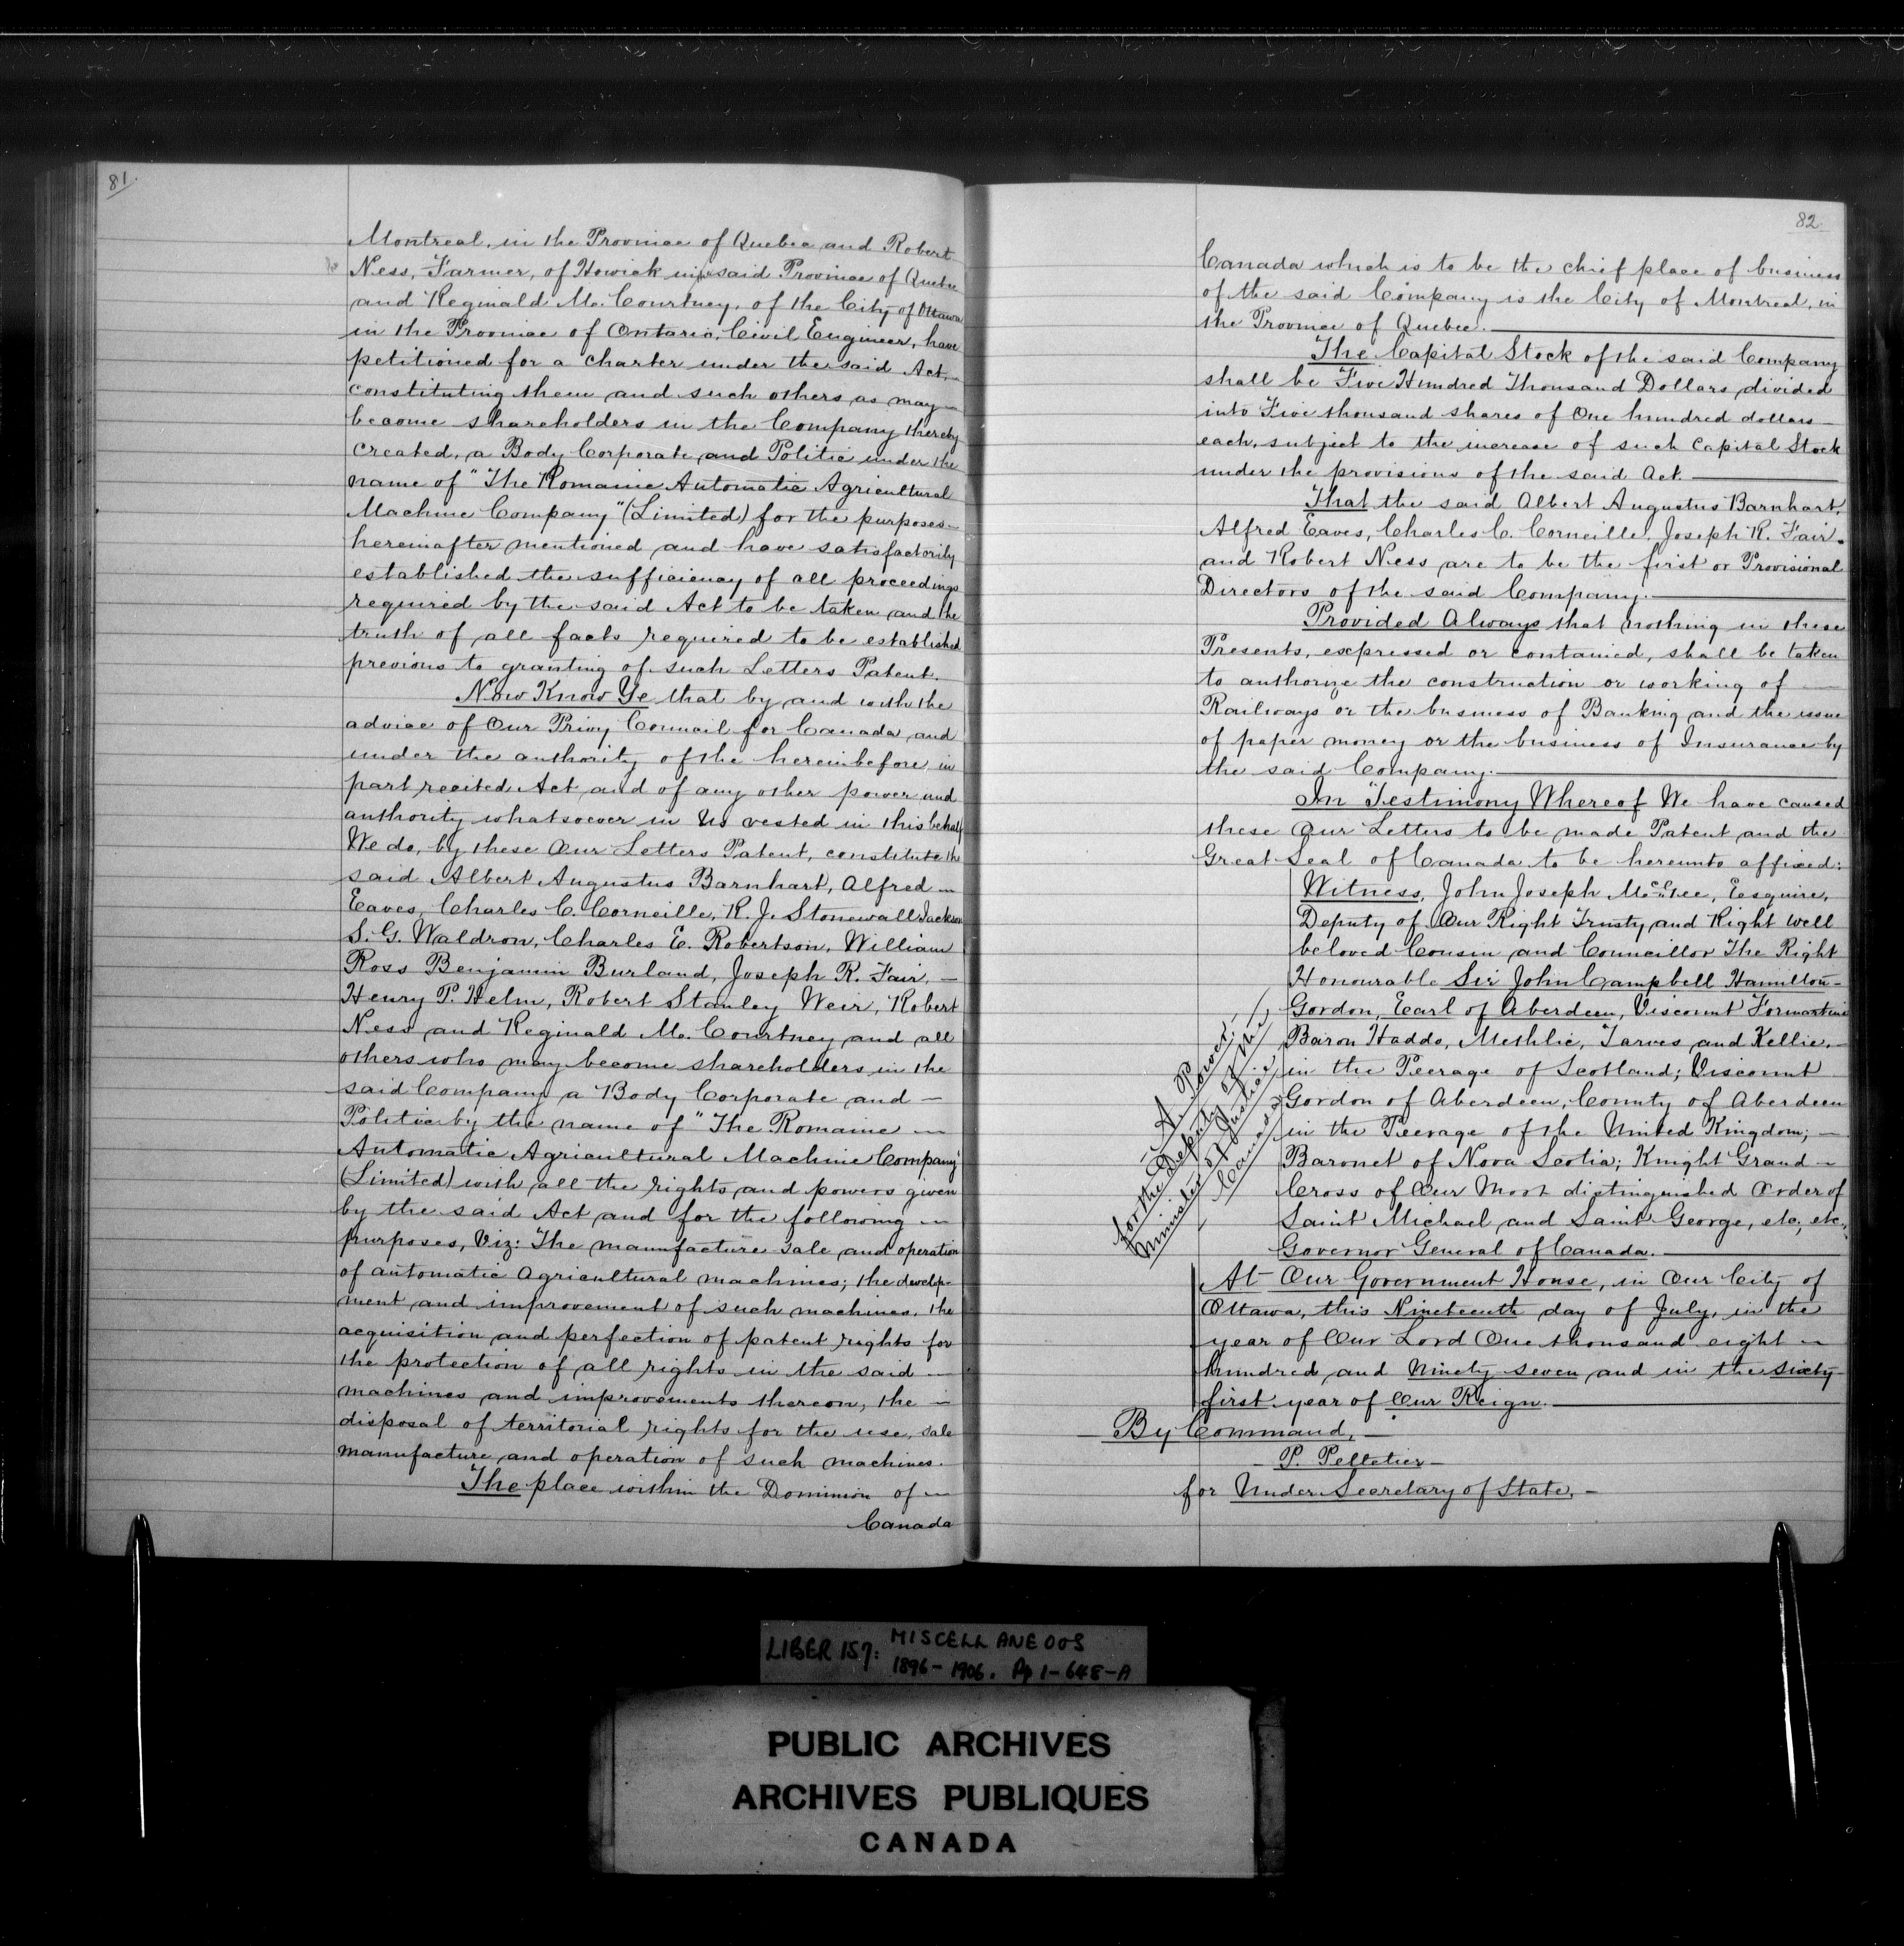 81.
Montreal, in the Province of Quebec and Robert
Ness, Farmer, of Howick in said Province of Quebec
and Reginald M. Courtney, of the City of Ottawa
in the Province of Ontario, Civil Engineer, have
petitioned for a charter under the said Act,
constituting them and such others as may
become shareholders in the Company thereby
created, a Body Corporate and Politic under the
name of "The Romaine Automatic Agricultural
Machine Company" (Limited) for the purposes
hereinafter mentioned and have satisfactorily
established the sufficiency of all proceedings
required by the said Act to be taken and the
truth of all facts required to be established
previous to granting of such Letters Patent.
Now Know Ye that by and with the
advice of Our Privy Council for Canada and
under the authority of the hereinbefore in
part recited Act and of any other power and
authority whatsoever in Us vested in this behalf
We do, by these Our Letters Patent, constitute the
said Albert Augustus Barnhart, Alfred
Eaves, Charles C. Corneille, R. J. Stonewall Jackson
S. G. Waldron, Charles E. Robertson, William
Ross Benjamin Burland, Joseph R. Fair,
Henry P. Helm, Robert Stanley Weir, Robert
Ness and Reginald M. Courtney and all
others who may become shareholders in the
said Company a Body Corporate and
Politic by the name of "The Romaine
Automatic Agricultural Machine Company"
(Limited) with all the rights and powers given
by the said Act and for the following
purposes, Viz: The manufacture sale and operation
of automatic agricultural machines; the develop-
ment and improvement of such machines, the
acquisition and perfection of patent rights for
the protection of all rights in the said
machines and improvements thereon, the
disposal of territorial rights for the use, sale
manufacture and operation of such machines.
The place within the Dominion of
Canada
82.
Canada which is to be the chief place of business
of the said Company is the City of Montreal, in
the Province of Quebec.
The Capital Stock of the said Company
shall be Five Hundred Thousand Dollars divided
into Five thousand shares of One hundred dollars
each, subject to the increase of such Capital Stock
under the provisions of the said Act.
That the said Albert Augustus Barnhart,
Alfred Eaves, Charles C. Corneille, Joseph R. Fair.
and Robert Ness are to be the first or Provisional
Directors of the said Company.
Provided Always that nothing in these
Presents, expressed or contained, shall be taken
to authorize the construction or working of
Railways or the business of Banking and the issue
of paper money or the business of Insurance by
the said Company.
In Testimony Whereof We have caused
these Our Letters to be made Patent and the
Great Seal of Canada to be hereunto affixed:
Witness, John Joseph McGee, Esquire,
Deputy of Our Right Trusty and Right Well
beloved Cousin and Councillor The Right
Honourable Sir John Campbell Hamilton-
Gordon, Earl of Aberdeen, Viscount Formartine
Baron Haddo, Methlic, Tarves and Kellie,
in the Peerage of Scotland; Viscount
Gordon of Aberdeen, County of Aberdeen
in the Peerage of the United Kingdom;
Baronet of Nova Scotia; Knight Grand
Cross of Our Most distinguished Order of
Saint Michael and Saint George, etc; etc.
Governor General of Canada.
A. Power,
for the Deputy of the
Minister of Justice
Canada
At Our Government House, in Our City of
Ottawa, this Nineteenth day of July, in the
year of Our Lord One thousand eight
hundred and Ninety seven and in the Sixty
first year of Our Reign.
By Command,
P. Pelletier
for Under Secretary of State.
LIBER 157: MISCELLANEOUS
1896-1906. Pp 1-648-A
PUBLIC ARCHIVES
ARCHIVES PUBLIQUES
CANADA